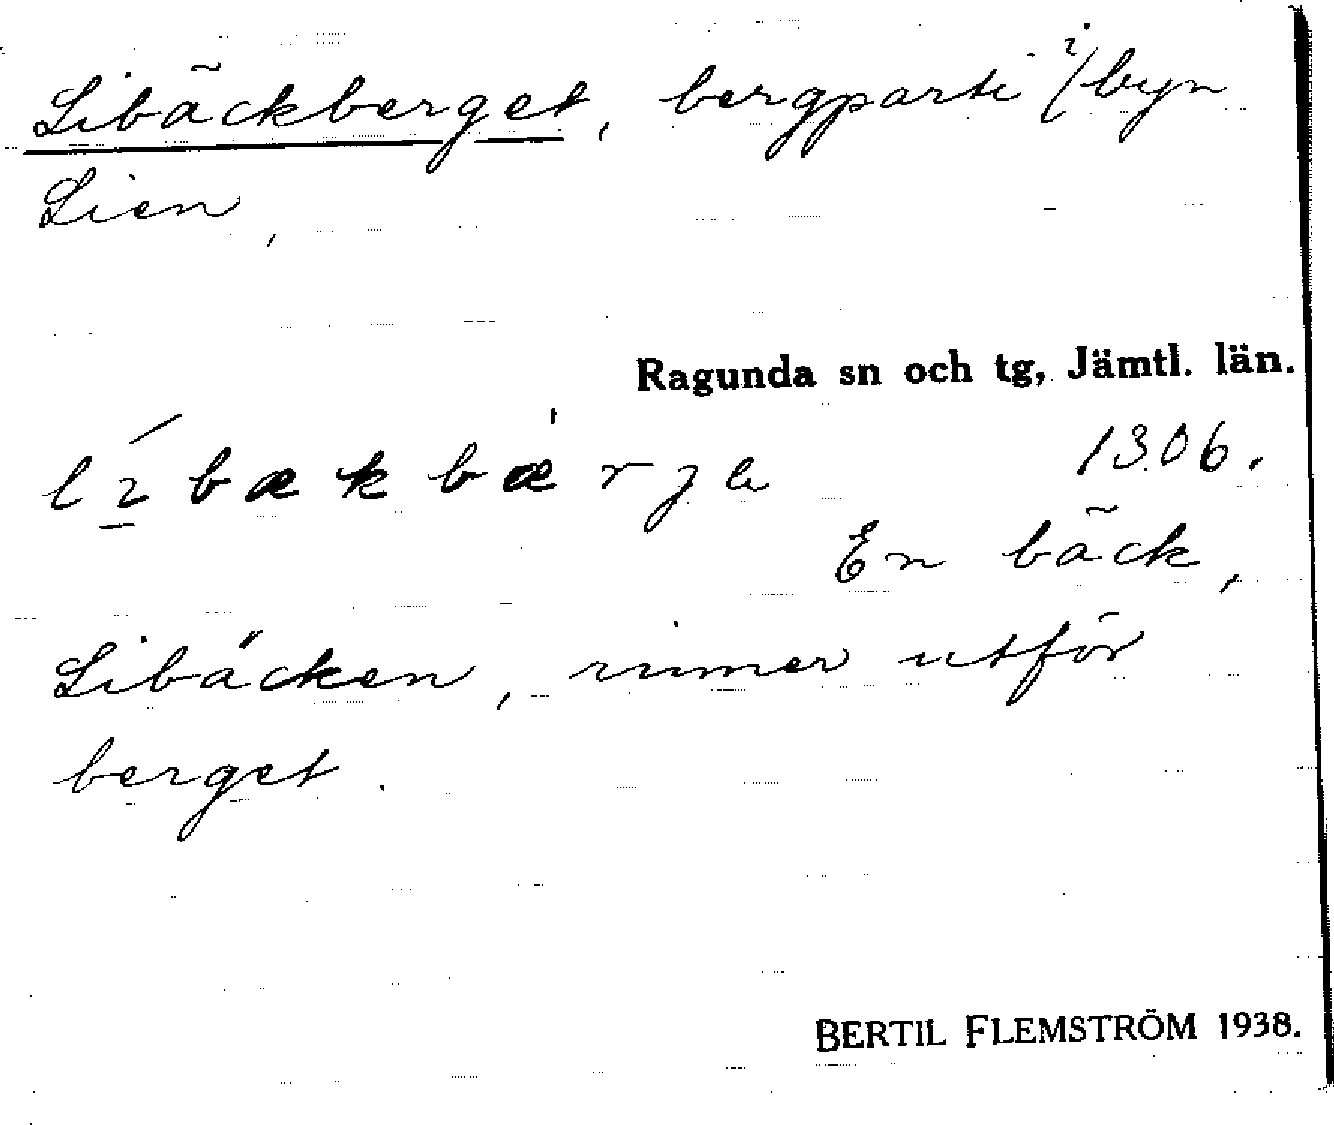 Libäckberget, bergparti i/byn
Lien,
Ragunda sn och tg, Jämtl. län.
1306.
En bäck,
Libäcken, rinner utför
berget.
BERTIL FLEMSTRÖM 1938.